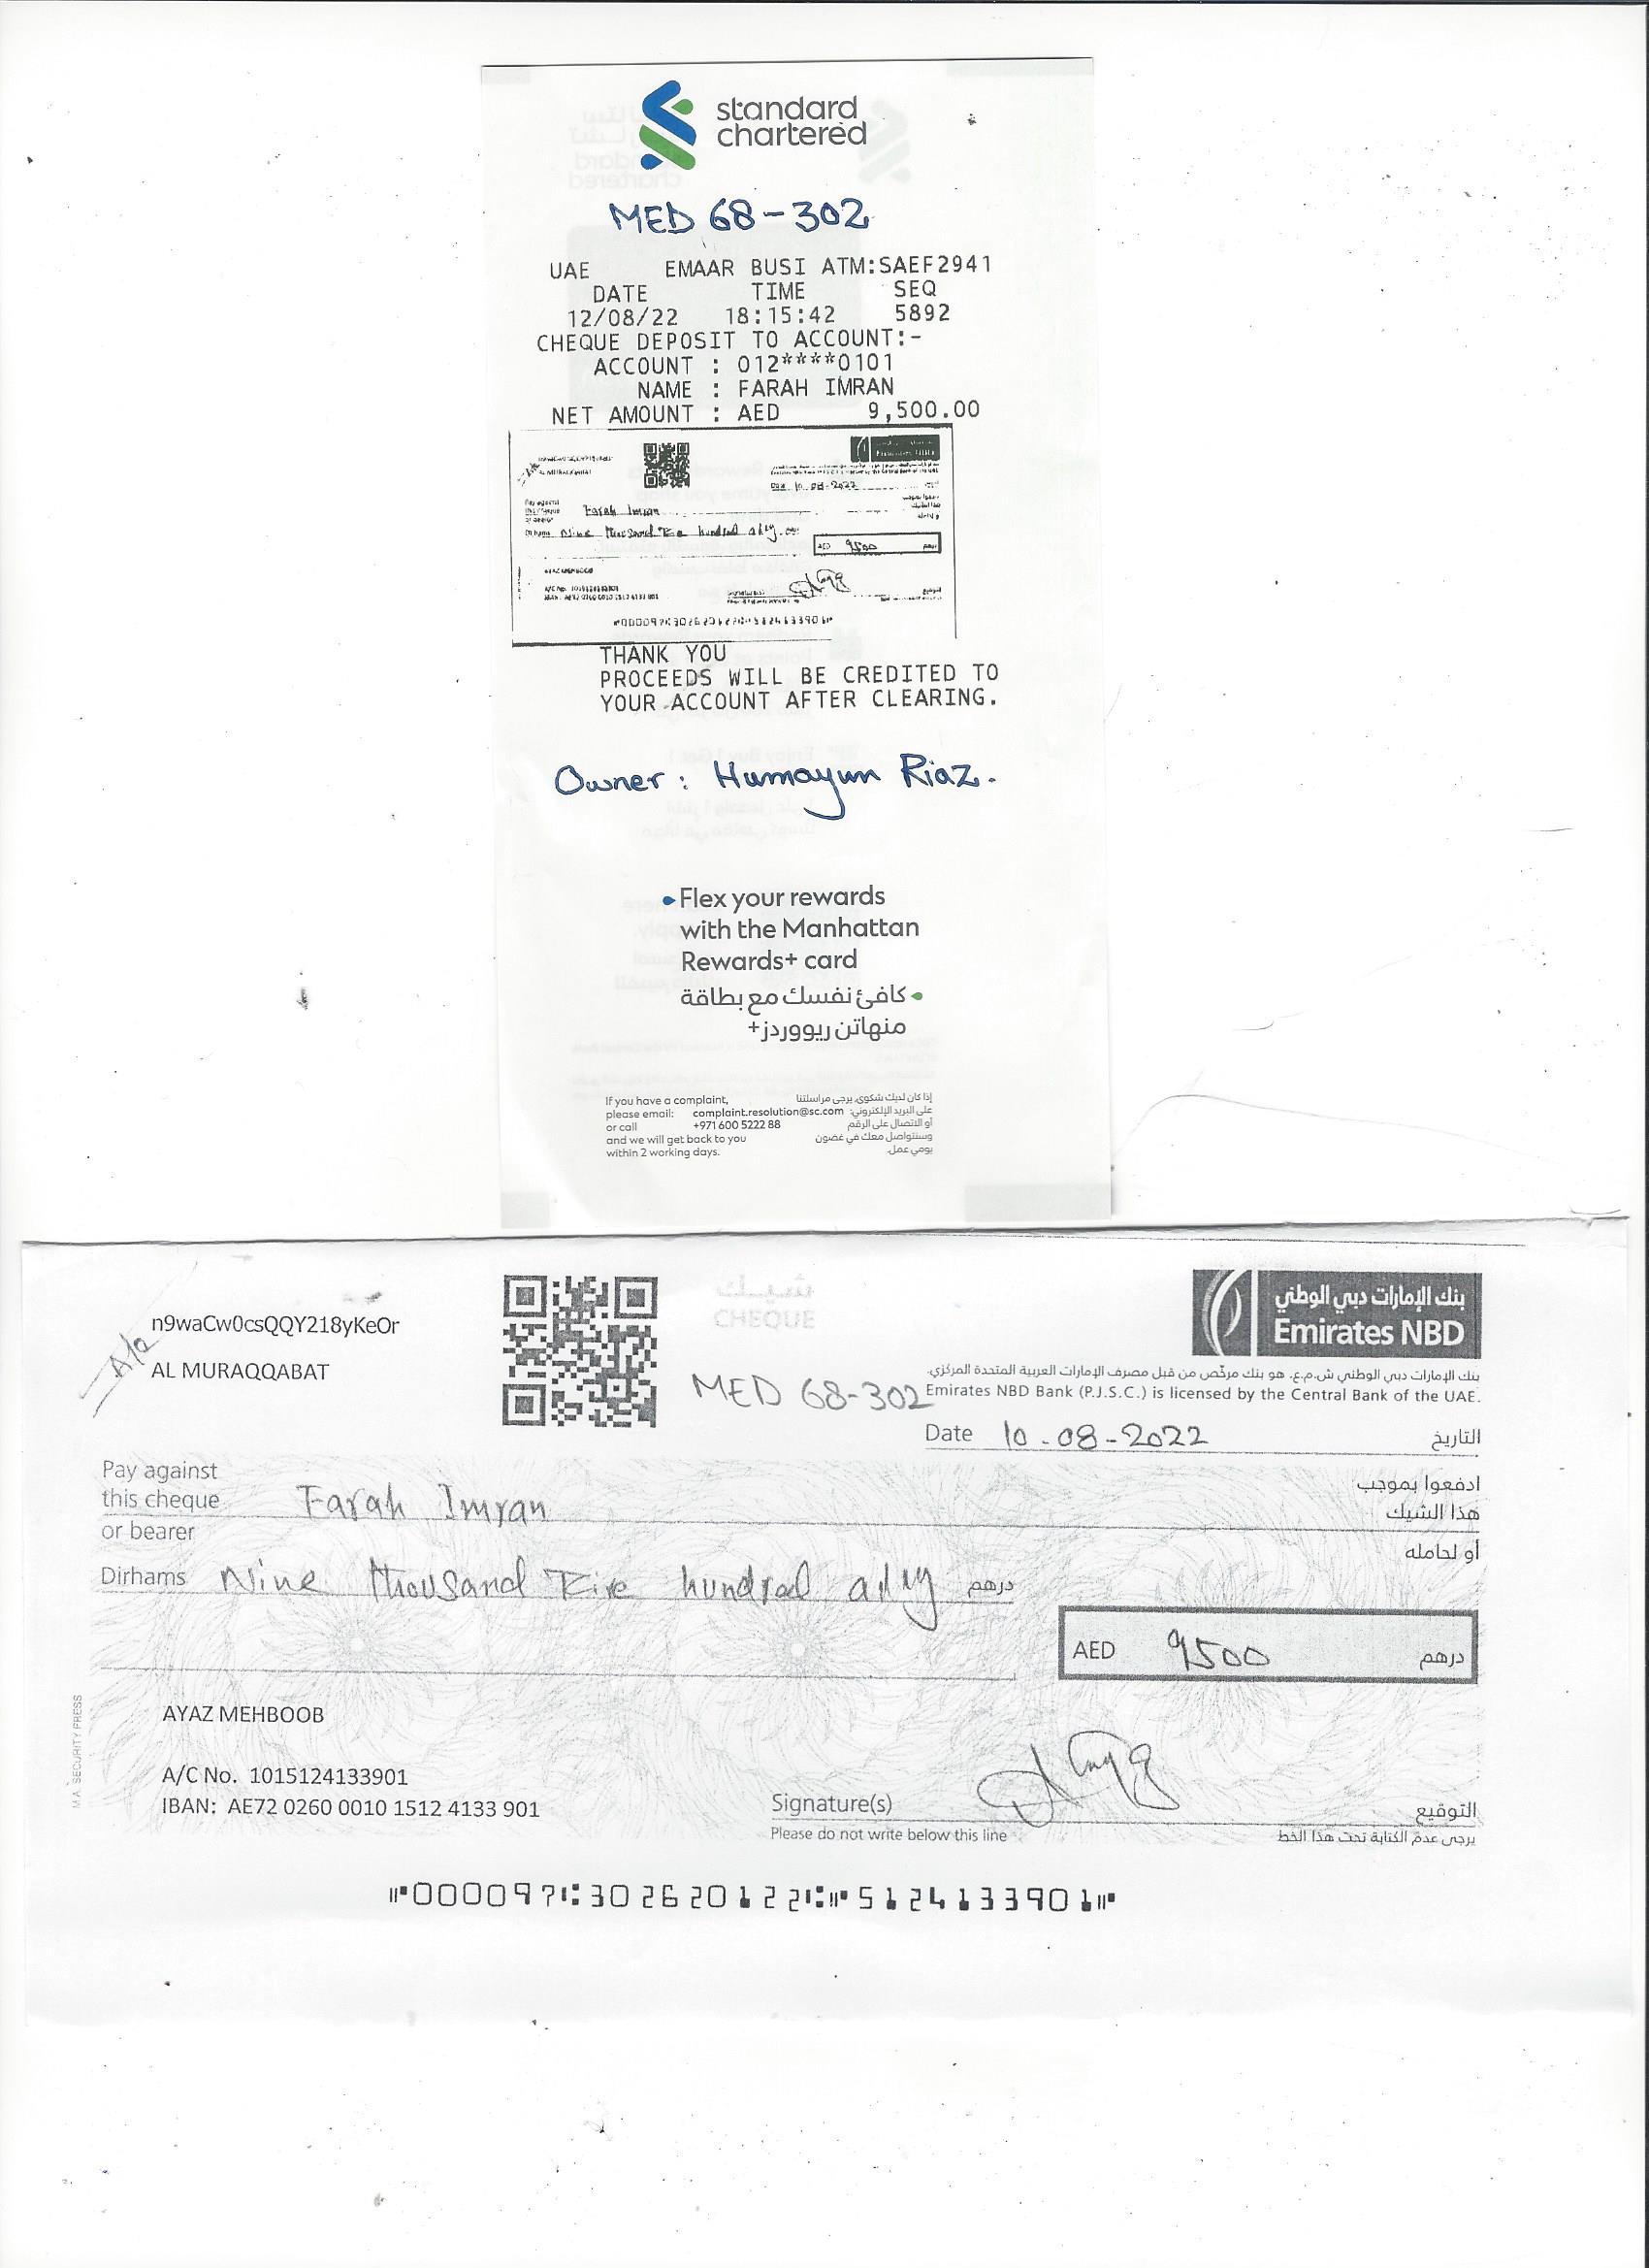 standard
chartered
MED 68-302
UAE EMAAR BUSI ATM:SAEF2941
DATE TIME SEQ
12/08/22 18:15:42 5892
CHEQUE DEPOSIT TO ACCOUNT:-
ACCOUNT : 012****0101
NAME : FARAH IMRAN
NET AMOUNT : AED 9,500.00
Farah Imran
AED 9500
THANK YOU
PROCEEDS WILL BE CREDITED TO
YOUR ACCOUNT AFTER CLEARING.
Owner: Humayun Riaz.
Flex your rewards
with the Manhattan
Rewards+ card
كافئ نفسك مع بطاقة
منهاتن ريووردز+
If you have a complaint,
please email: complaint.resolution@sc.com
or call +971 600 5222 88
and we will get back to you
within 2 working days.
إذا كان لديك شكوى، يرجى مراسلتنا
على البريد الإلكتروني:
أو الاتصال على الرقم
وسنتواصل معك في غضون
يومي عمل.
n9waCw0csQQY218yKeOr
AL MURAQQABAT
شيك
CHEQUE
بنك الإمارات دبي الوطني
Emirates NBD
بنك الإمارات دبي الوطني ش.م.ع. هو بنك مرخّص من قبل مصرف الإمارات العربية المتحدة المركزي.
MED 68-302
Emirates NBD Bank (P.J.S.C.) is licensed by the Central Bank of the UAE.
Date 10-08-2022 التاريخ
Pay against ادفعوا بموجب
this cheque Farah Imran هذا الشيك
or bearer أو لحامله
Dirhams Nine thousand Five hundred only درهم
AED 9500 درهم
AYAZ MEHBOOB
A/C No. 1015124133901
IBAN: AE72 0260 0010 1512 4133 901
Signature(s) التوقيع
Please do not write below this line يرجى عدم الكتابة تحت هذا الخط
M.A. SECURITY PRESS
⑈000097⑆302620122⑆⑈5124133901⑈